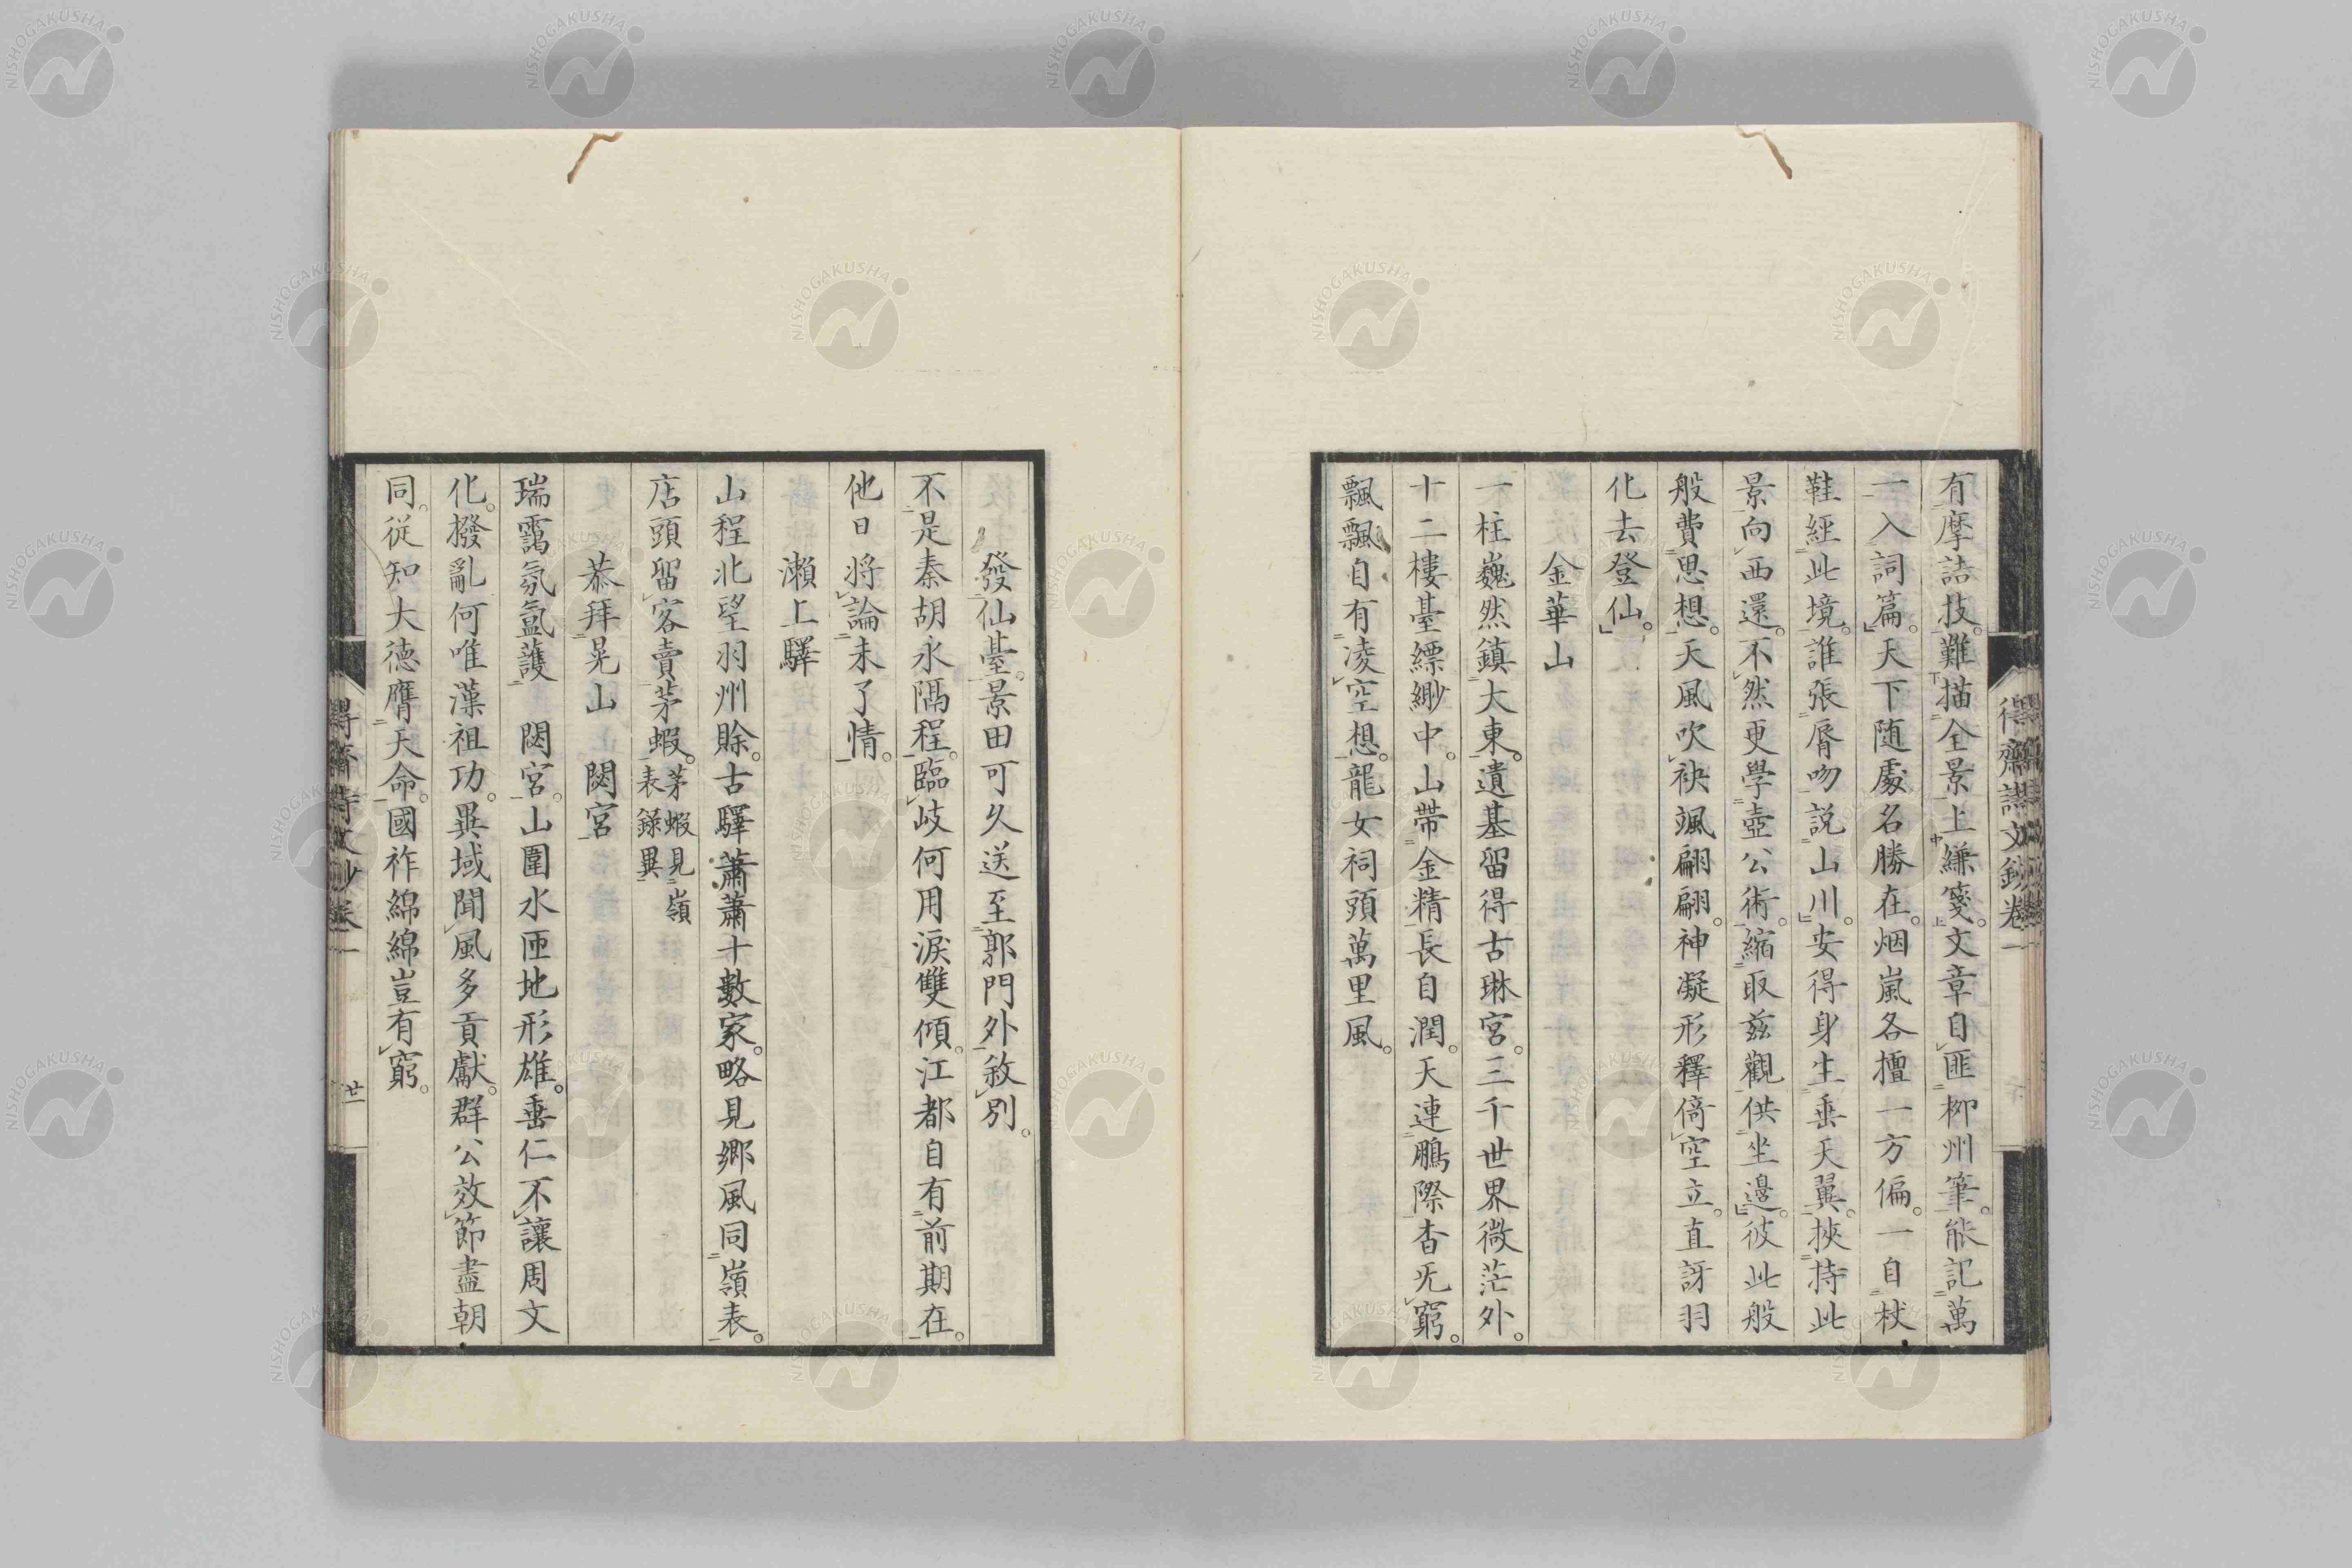 有摩詰技。難描全景上縑箋。文章自匪柳州筆。能記萬
一入詞篇。天下随處名勝在。烟嵐各擅一方偏。一自杖
鞋經此境。誰張脣吻説山川。安得身生垂天翼。挾持此
景向西還。不然更學壺公術。縮取茲觀供坐邊。彼此般
般費思想。天風吹袂颯翩翩。神凝形釋倚空立。直訝羽
化去登仙。
金華山
一柱巍然鎮大東。遺基留得古琳宮。三千世界微茫外。
十二樓臺縹緲中。山帶金精長自潤。天連鵬際杳旡窮。
飄飄自有凌空想。龍女祠頭萬里風。
得齋詩文鈔卷一
發仙臺。景田可久送至郭門外敘別。
不是秦胡永隔程。臨岐何用淚雙傾。江都自有前期在。
他日将論未了情。
瀨上驛
山程北望羽州賒。古驛蕭蕭十數家。略見郷風同嶺表。
店頭留客賣茅蝦。茅蝦見嶺
表錄異
恭拜晃山 閟宮
瑞靄氛氳護 閟宮。山圍水匝地形雄。垂仁不讓周文
化。撥亂何唯漢祖功。異域聞風多貢獻。群公效節盡朝
同。従知大德膺天命。國祚綿綿豈有窮。
得齋詩文鈔卷一
廿一
NISHOGAKUSHA